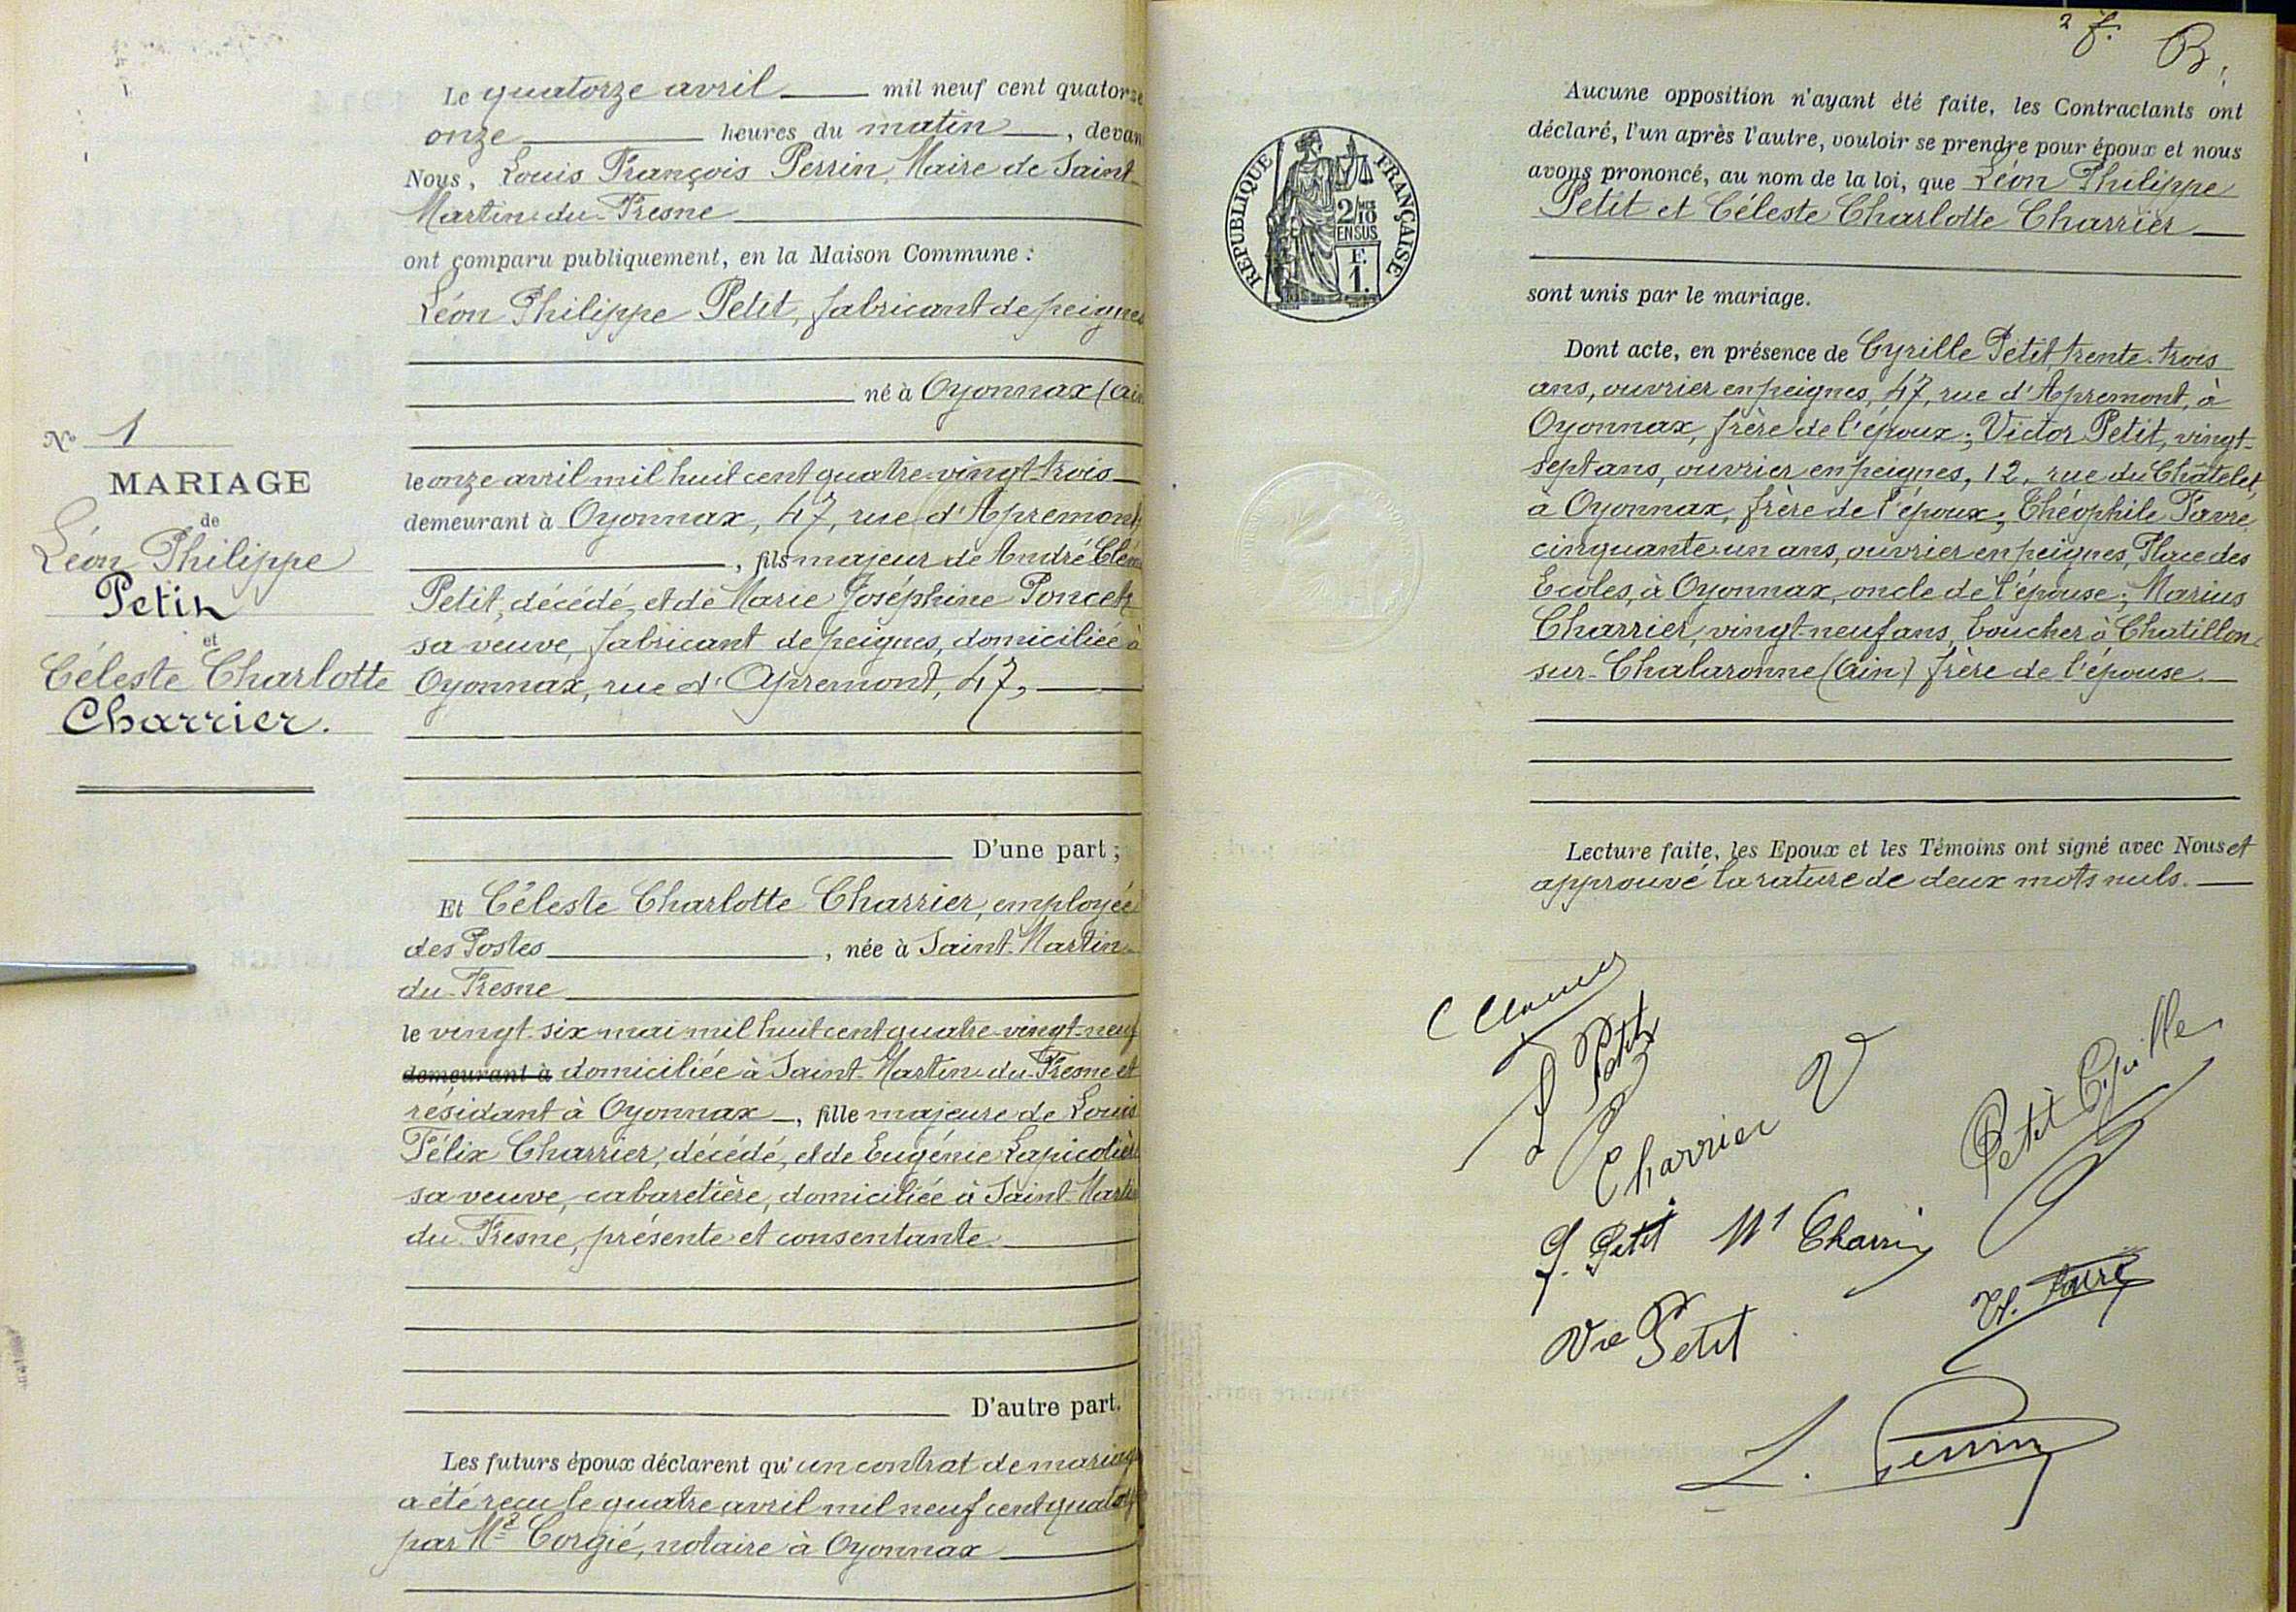 N° 1
MARIAGE
de
Léon Philippe
Petit
et
Céleste Charlotte
Charrier.
Le quatorze avril mil neuf cent quatorze
onze heures du matin, devan
Nous, Louis François Perrin, Maire de Saint-
Martin-du-Fresne
ont comparu publiquement, en la Maison Commune :
Léon Philippe Petit, fabricant de peignes
né à Oyonnax (Ain
le onze avril mil huit cent quatre-vingt-trois
demeurant à Oyonnax, 47, rue d'Apremont,
, fils majeur de André Clém
Petit, décédé, et de Marie Joséphine Poncet
sa veuve, fabricant de peignes, domiciliée à
Oyonnax, rue d'Apremont, 47,
D'une part ;
Et Céleste Charlotte Charrier, employée
des Postes, née à Saint-Martin-
du-Fresne
le vingt-six mai mil huit cent quatre-vingt-neuf
demeurant à domiciliée à Saint-Martin-du-Fresne et
résidant à Oyonnax, fille majeure de Louis
Félix Charrier, décédé, et de Eugénie Lapicotière
sa veuve, cabaretière, domiciliée à Saint-Martin
du-Fresne, présente et consentante.
D'autre part.
Les futurs époux déclarent qu'un contrat de mariage
a été reçu le quatre avril mil neuf cent quatorze
par Me Corgié, notaire à Oyonnax
2 f. B.
RÉPUBLIQUE FRANÇAISE
2/10 MES
EN SUS
F.
1.
Aucune opposition n'ayant été faite, les Contractants ont
déclaré, l'un après l'autre, vouloir se prendre pour époux et nous
avons prononcé, au nom de la loi, que Léon Philippe
Petit et Céleste Charlotte Charrier
sont unis par le mariage.
Dont acte, en présence de Cyrille Petit, trente-trois
ans, ouvrier en peignes, 47, rue d'Apremont, à
Oyonnax, frère de l'époux ; Victor Petit, vingt-
sept ans, ouvrier en peignes, 12, rue du Châtelet,
à Oyonnax, frère de l'époux ; Théophile Favre,
cinquante-un ans, ouvrier en peignes, Place des
Ecoles, à Oyonnax, oncle de l'épouse ; Marius
Charrier, vingt-neuf ans, boucher à Chatillon-
sur-Chalaronne (Ain) frère de l'épouse.
Lecture faite, les Epoux et les Témoins ont signé avec Nous et
approuvé la rature de deux mots nuls.
L Petit
Charrier V
Petit Cyrille
J. Petit M1 Charrier
Ve Petit
Th. Favre
L. Perrin